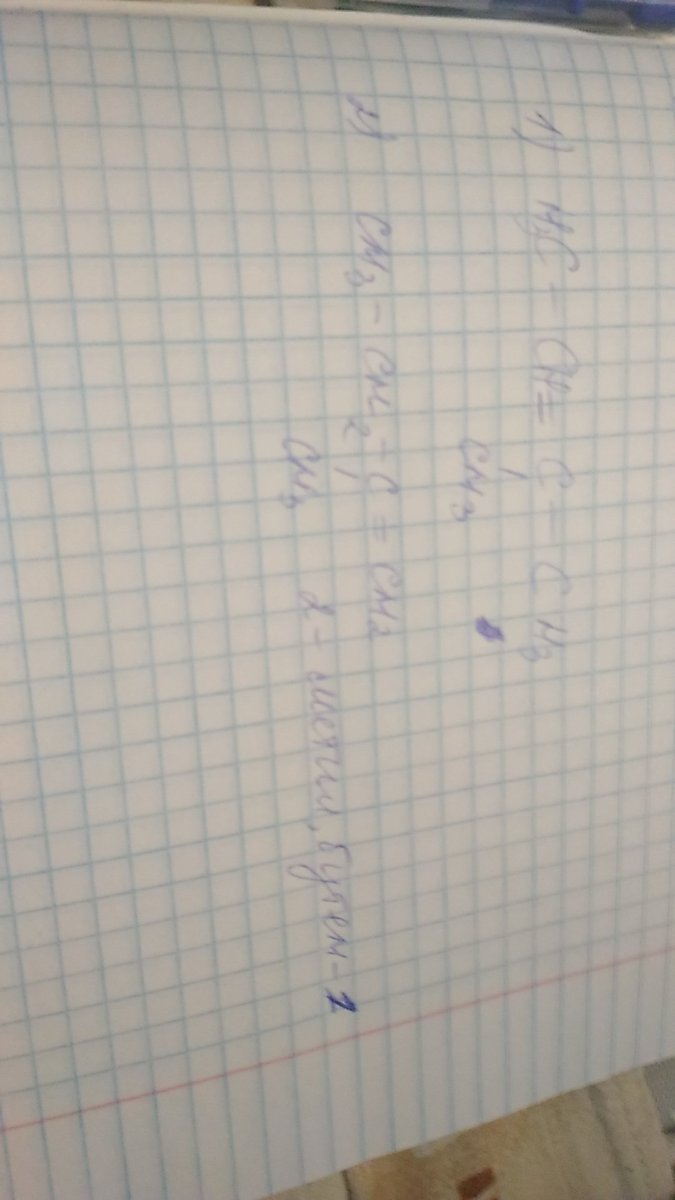 1) H₃C - CH = C - CH₃
CH₃
2) CH₃ - CH₂ - C = CH₂
CH₃ 2 - метил, бутен - 1